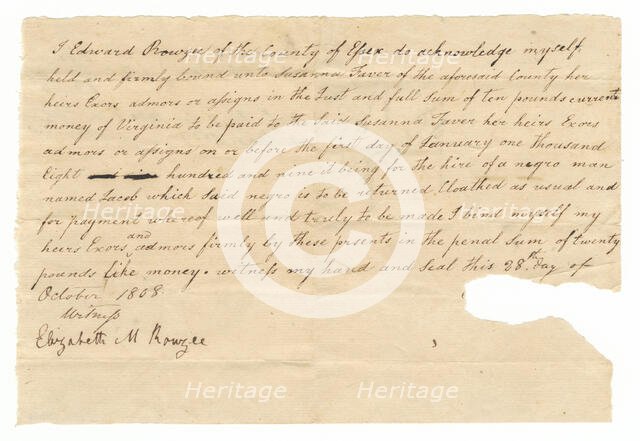 I Edward Rowzee of the County of Essex do acknowledge myself
held and firmly bound unto Susanna Faver of the aforesaid County her
heirs Exors admors or assigns in the Just and full Sum of ten pounds current
money of Virginia to be paid to the Said Susanna Faver her heirs Exors
admors or assigns on or before the first day of January one thousand
Eight hundred and nine it being for the hire of a negro man
named Jacob which Said negro is to be returned Cloathed as usual and
for payment whereof well and truly to be made I bind myself my
heirs Exors and admors firmly by these presents in the penal Sum of twenty
pounds like money. witness my hand and Seal this 28th Day of
October 1808
Witness
Elizabeth M Rowzee
Heritage
Heritage
Heritage
Heritage
Heritage
Heritage
Heritage
Heritage